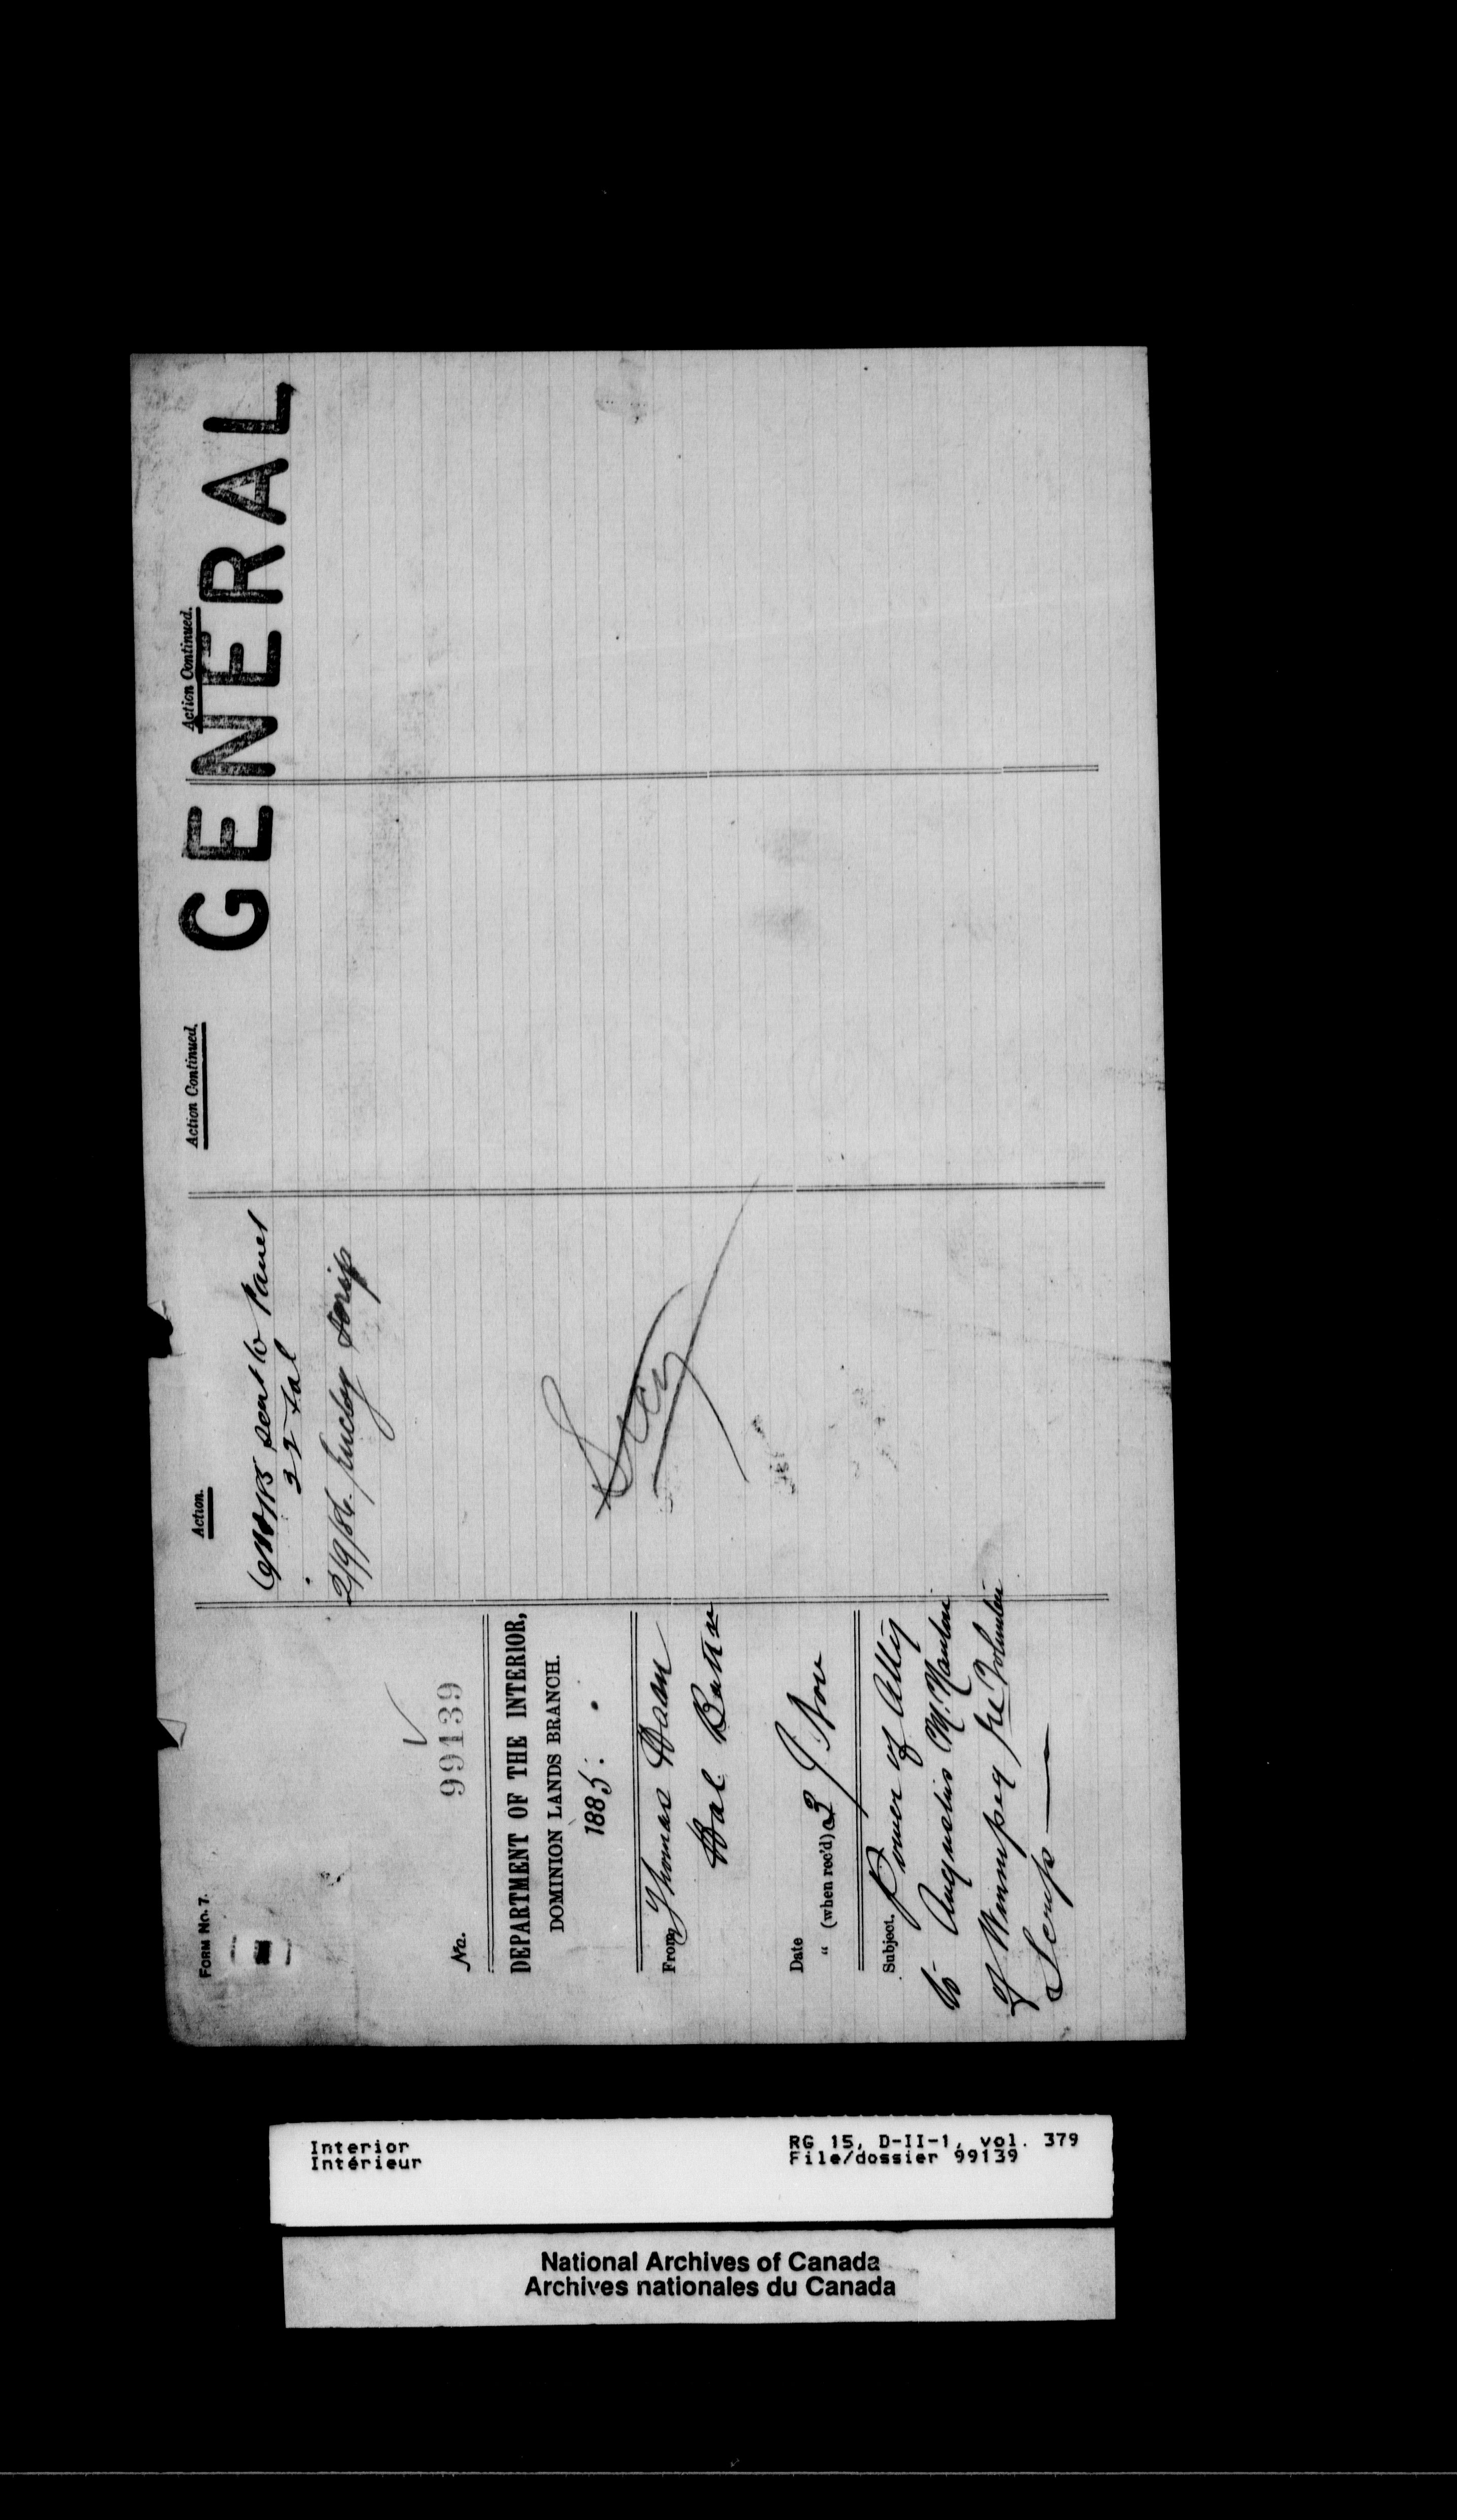 FORM No. 7.
No. 99139
DEPARTMENT OF THE INTERIOR,
DOMINION LANDS BRANCH.
1885.
From Thomas
Bal Battn
Date
" (when rec'd) 23 Nov
Subject. Power of Atty
to Augustus M. Nanton
of Winnipeg re Volunteer
Scrip
Action.
sent to Panet
2/9/86. scrip
Secy
Action Continued.
Action Continued.
GENERAL
Interior
Intérieur
RG 15, D-II-1, vol. 379
File/dossier 99139
National Archives of Canada
Archives nationales du Canada